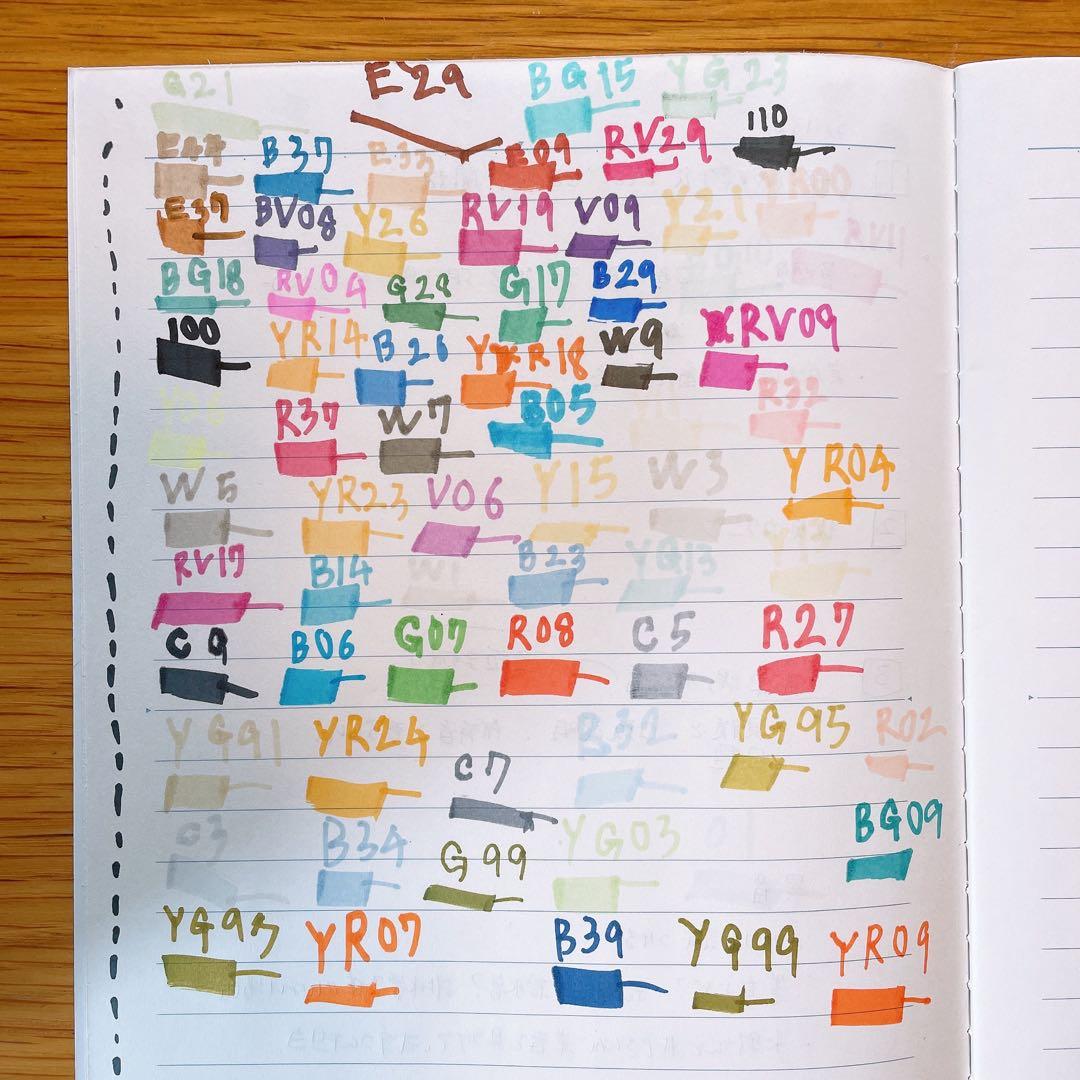 G21 E29 BG15 YG23
E44 B37 E33 E09 RV29 110
E37 BV08 Y26 RV19 V09 Y21 YR00
BG18 RV04 G28 G17 B29
100 YR14 B26 YR18 W9 RV09
Y06 R37 W7 B05 R32
W5 YR23 V06 Y15 W3 YR04
RV17 B14 W1 B23 YG13
C9 B06 G07 R08 C5 R27
YG91 YR24 C7 B32 YG95 R02
C3 B34 G99 YG03 BG09
YG95 YR07 B39 YG99 YR09